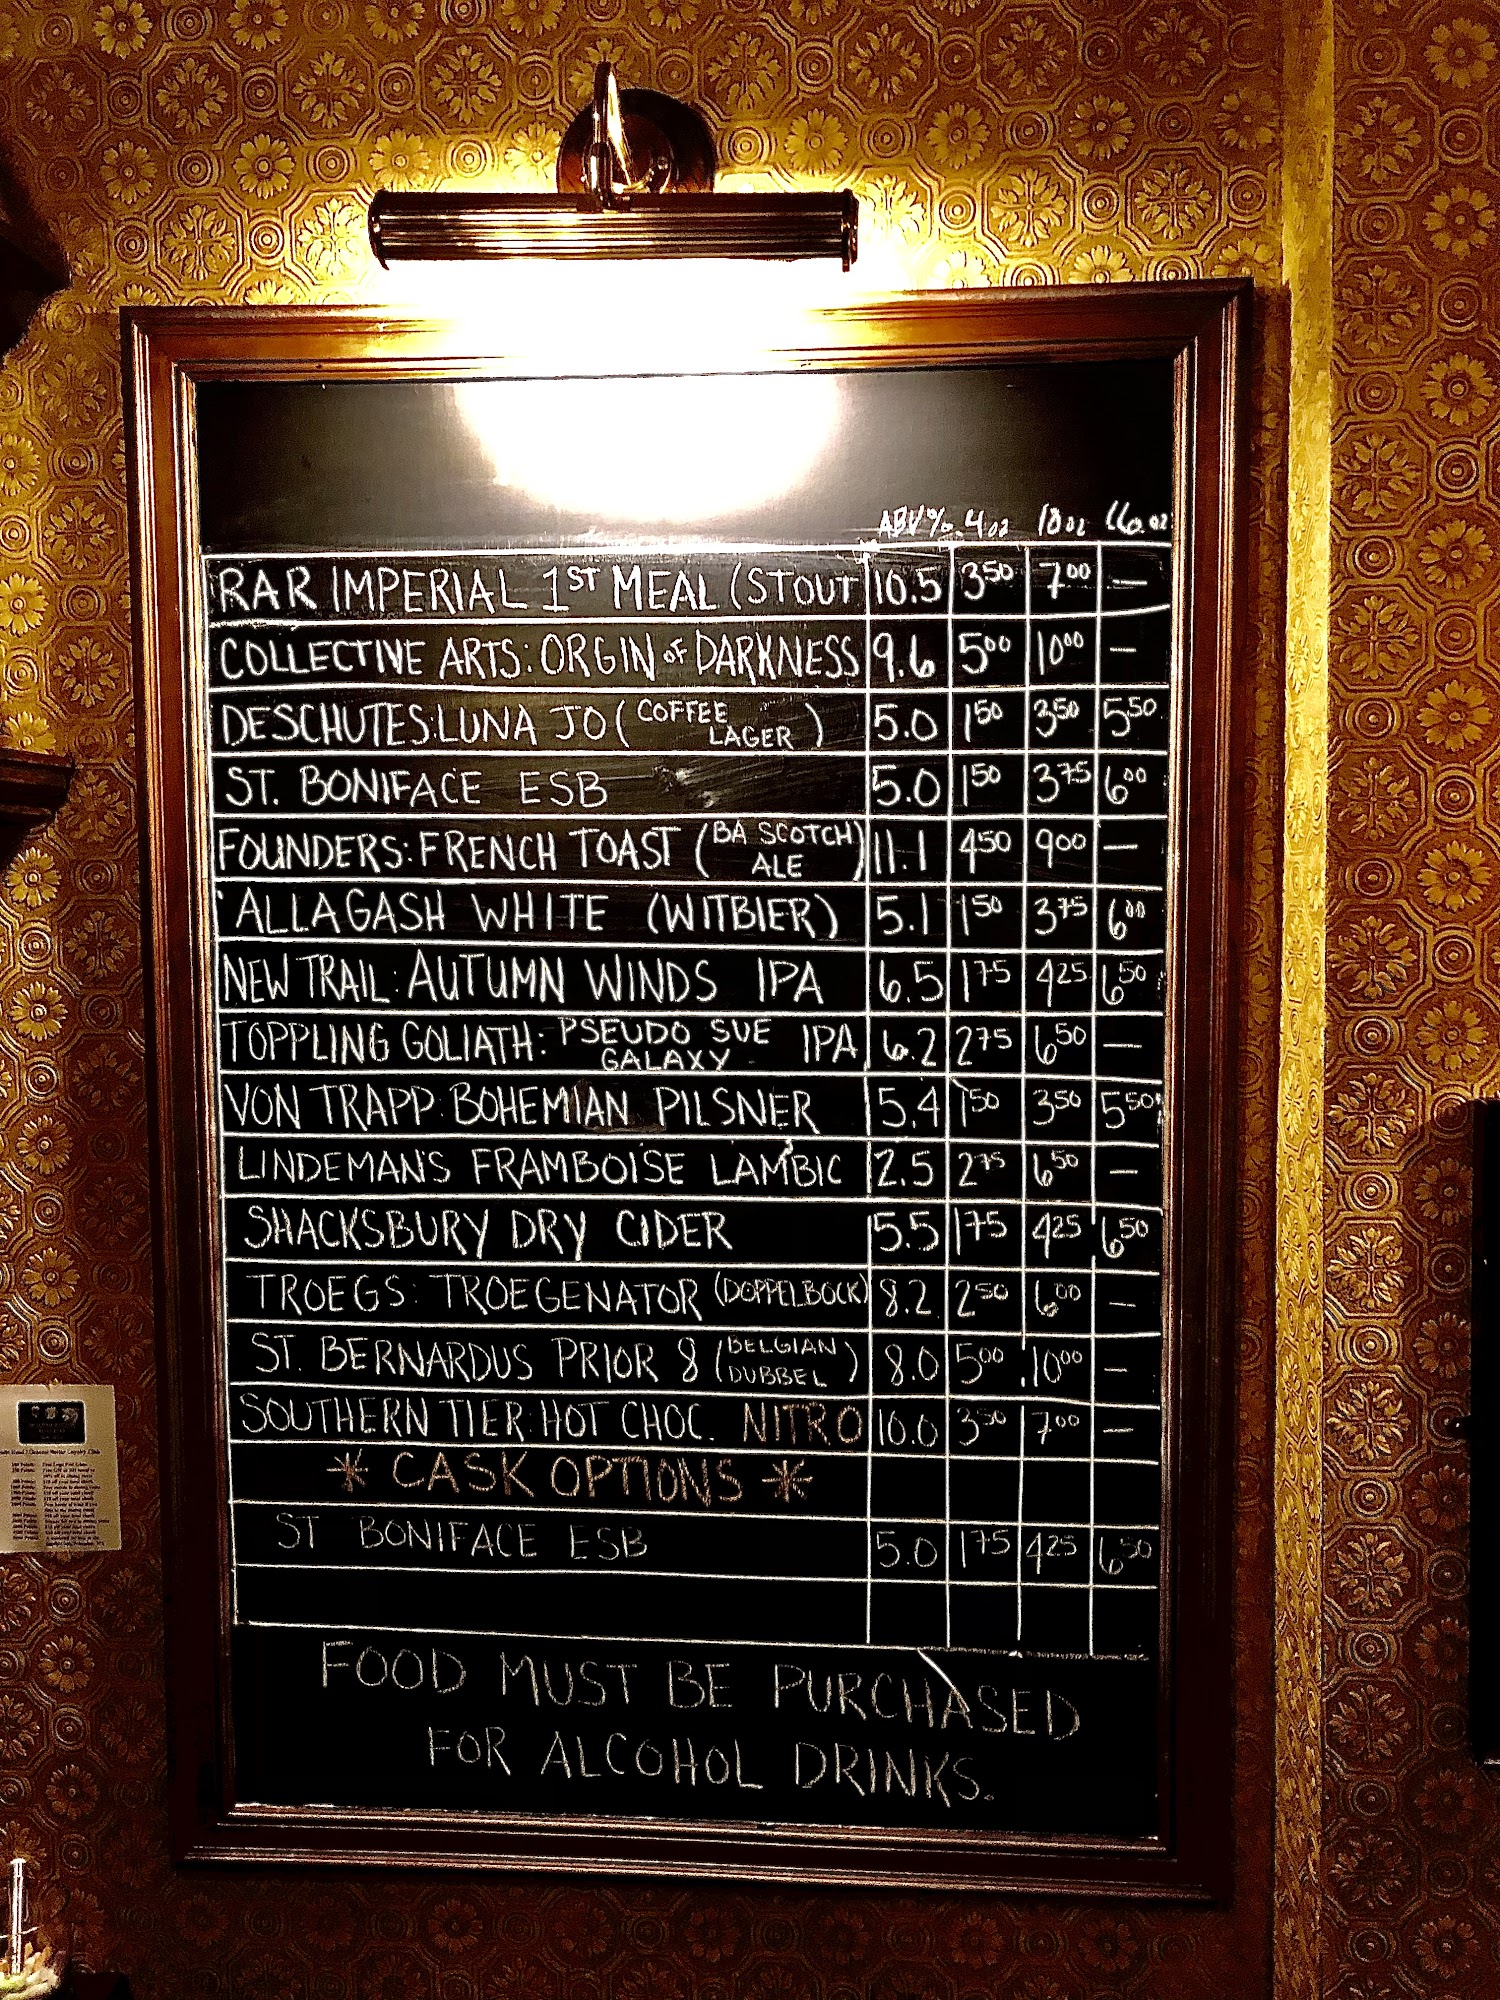 ABV% 4oz 10oz 16oz
RAR IMPERIAL 1ST MEAL (STOUT 10.5 3 50 7 00 —
COLLECTIVE ARTS: ORGIN of DARKNESS 9.6 5 00 10 00 —
DESCHUTES: LUNA JO (COFFEE LAGER) 5.0 1 50 3 50 5 50
ST. BONIFACE ESB 5.0 1 50 3 75 6 00
FOUNDERS: FRENCH TOAST (BA SCOTCH ALE) 11.1 4 50 9 00 —
ALLAGASH WHITE (WITBIER) 5.1 1 50 3 75 6 00
NEW TRAIL: AUTUMN WINDS IPA 6.5 1 75 4 25 6 50
TOPPLING GOLIATH: PSEUDO SUE GALAXY IPA 6.2 2 75 6 50 —
VON TRAPP: BOHEMIAN PILSNER 5.4 1 50 3 50 5 50
LINDEMAN'S FRAMBOISE LAMBIC 2.5 2 75 6 50 —
SHACKSBURY DRY CIDER 5.5 1 75 4 25 6 50
TROEGS: TROEGENATOR (DOPPELBOCK) 8.2 2 50 6 00 —
ST. BERNARDUS PRIOR 8 (BELGIAN DUBBEL) 8.0 5 00 10 00 —
SOUTHERN TIER: HOT CHOC. NITRO 10.0 3 50 7 00 —
* CASK OPTIONS *
ST BONIFACE ESB 5.0 1 75 4 25 6 50
FOOD MUST BE PURCHASED
FOR ALCOHOL DRINKS.